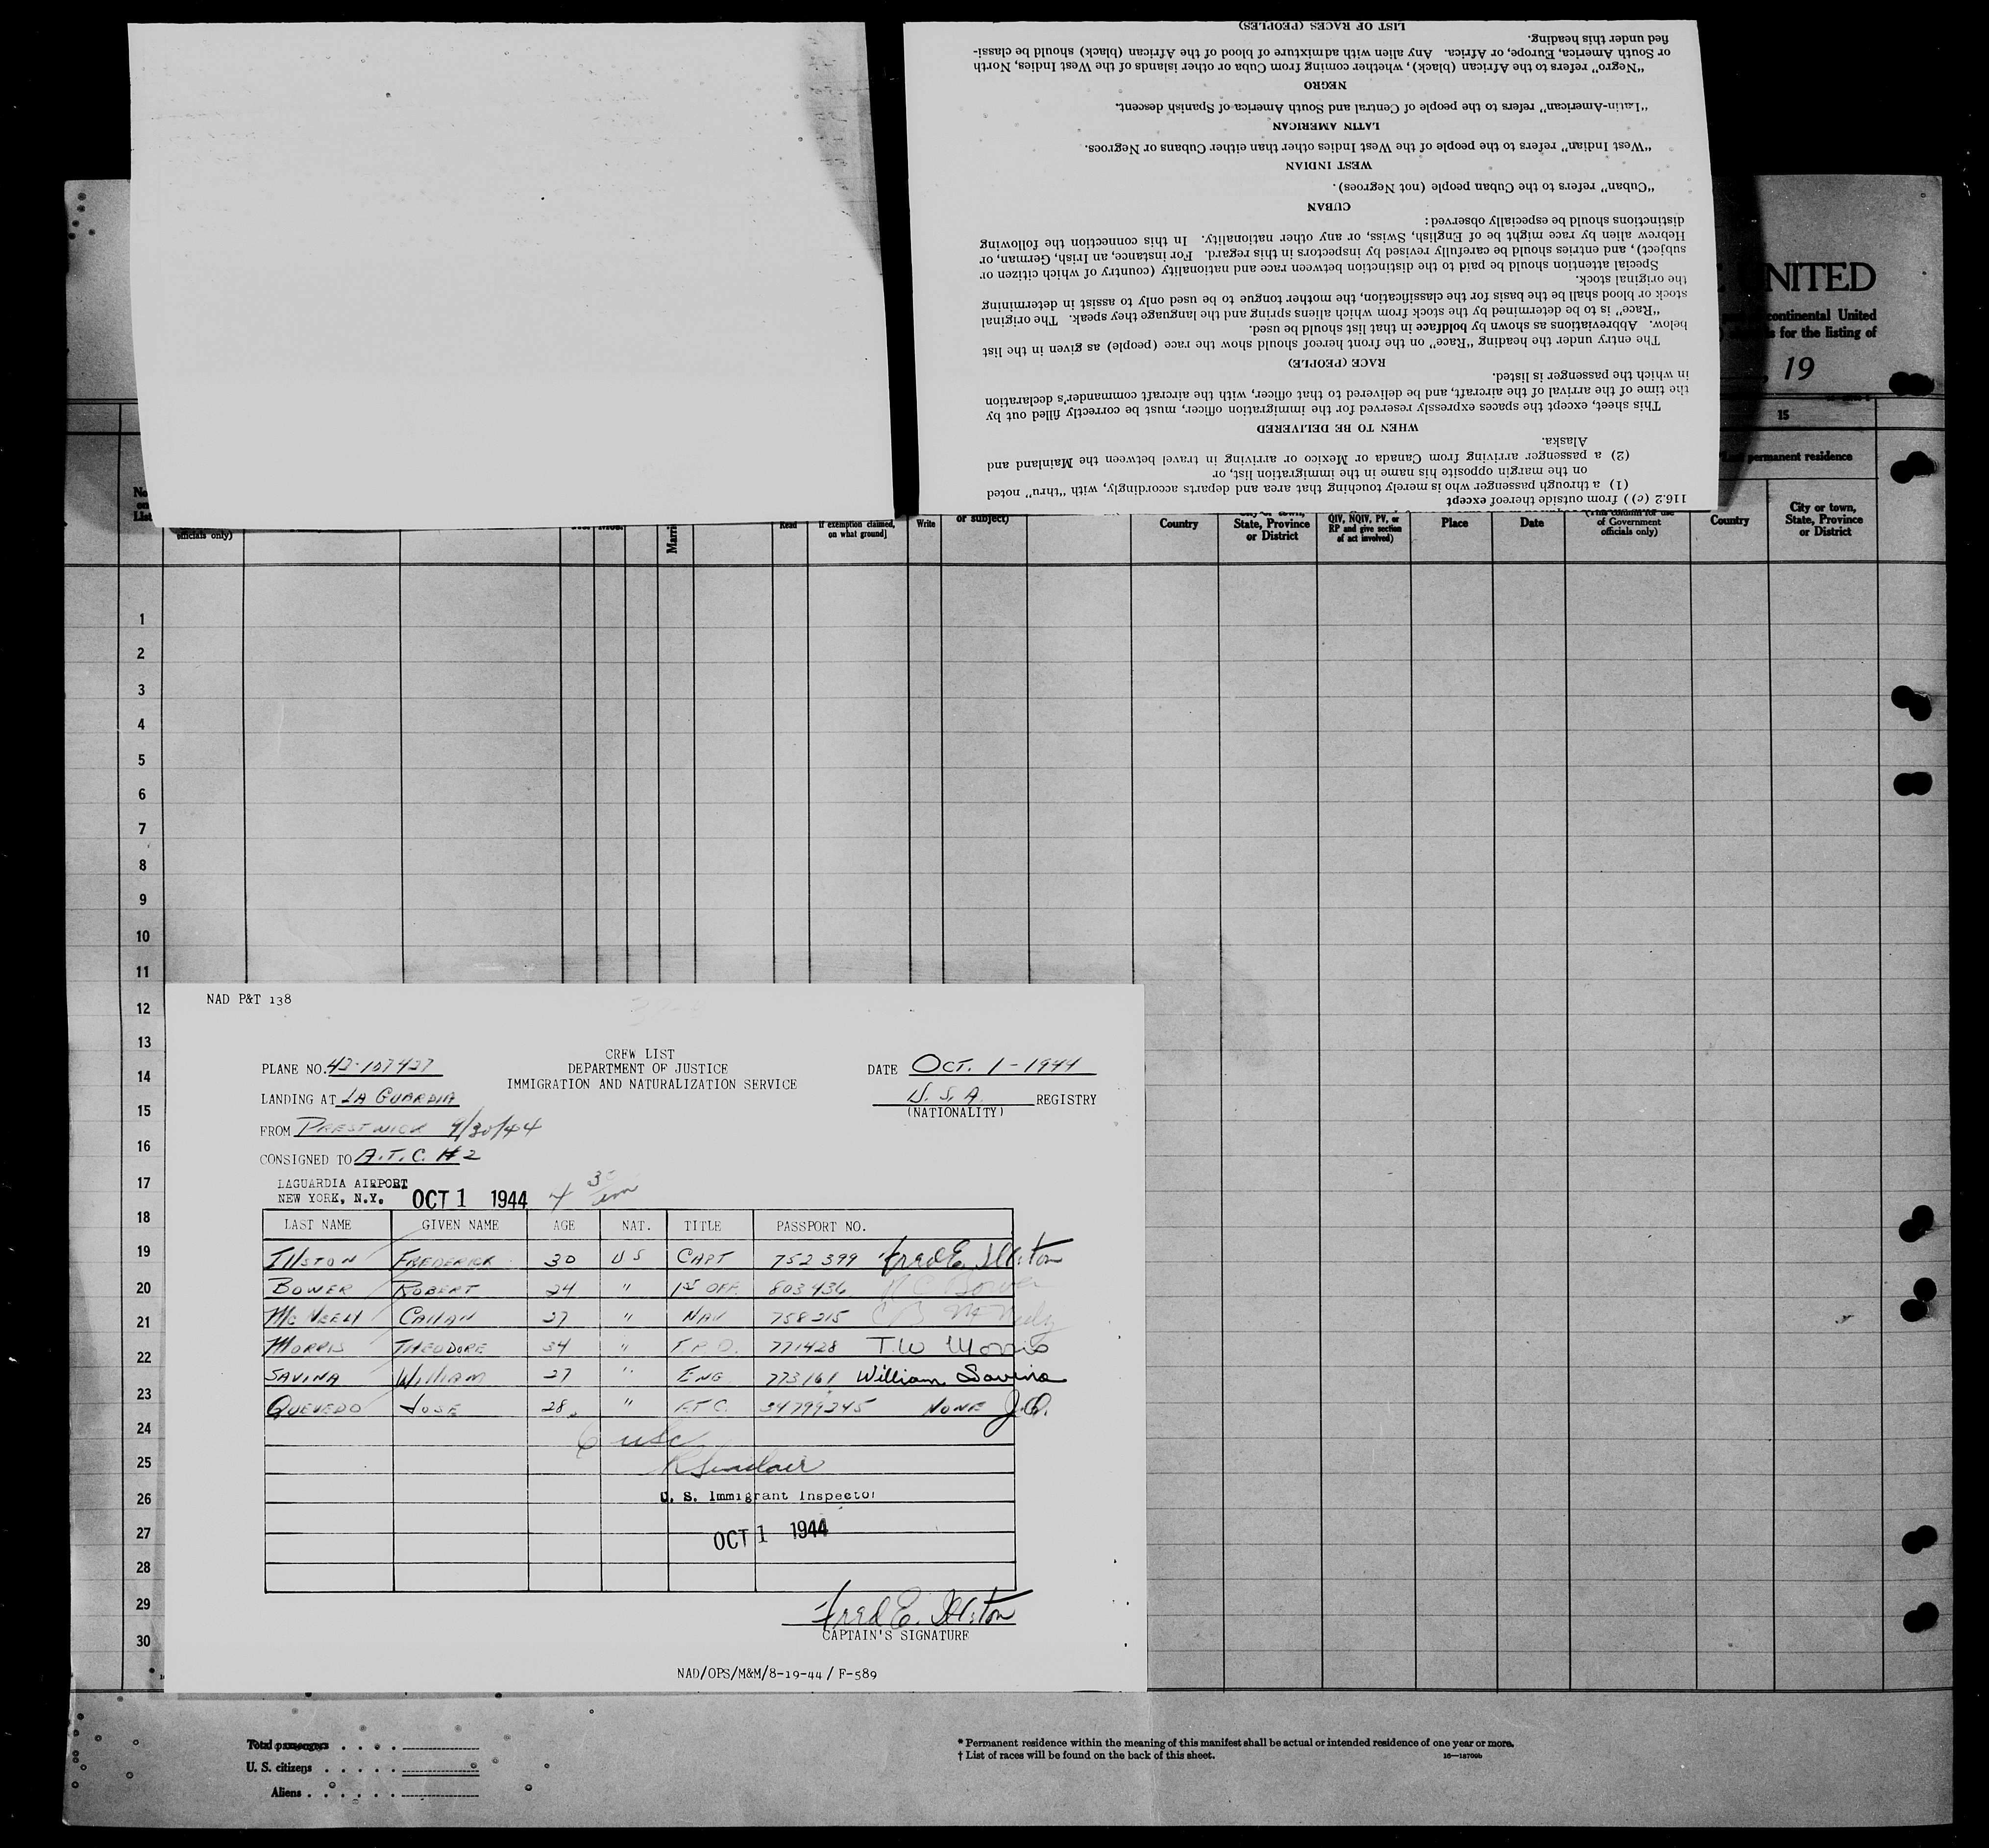 LIST OF RACES (PEOPLES)
fied under this heading.
or South America, Europe, or Africa. Any alien with admixture of blood of the African (black) should be classi-
"Negro" refers to the African (black), whether coming from Cuba or other islands of the West Indies, North
NEGRO
"Latin-American" refers to the people of Central and South America of Spanish descent.
LATIN AMERICAN
"West Indian" refers to the people of the West Indies other than either Cubans or Negroes.
WEST INDIAN
"Cuban" refers to the Cuban people (not Negroes).
CUBAN
distinctions should be especially observed:
Hebrew alien by race might be of English, Swiss, or any other nationality. In this connection the following
subject), and entries should be carefully revised by inspectors in this regard. For instance, an Irish, German, or
Special attention should be paid to the distinction between race and nationality (country of which citizen or
the original stock.
stock or blood shall be the basis for the classification, the mother tongue to be used only to assist in determining
"Race" is to be determined by the stock from which aliens spring and the language they speak. The original
below. Abbreviations as shown by boldface in that list should be used.
The entry under the heading "Race" on the front hereof should show the race (people) as given in the list
RACE (PEOPLE)
in which the passenger is listed.
the time of the arrival of the aircraft, and be delivered to that officer, with the aircraft commander's declaration
This sheet, except the spaces expressly reserved for the immigration officer, must be correctly filled out by
WHEN TO BE DELIVERED
Alaska.
(2) a passenger arriving from Canada or Mexico or arriving in travel between the Mainland and
on the margin opposite his name in the immigration list, or
(1) a through passenger who is merely touching that area and departs accordingly, with "thru" noted
116.2 (c)) from outside thereof except
E UNITED
continental United
s for the listing of
, 19
15
permanent residence
No. on List
officials only)
Marri
Read
if exemption claimed, on what ground]
Write
or subject)
Country
State, Province or District
QIV, NQIV, PV, or RP and give section of act involved)
Place
Date
(This column for use of Government officials only)
Country
City or town, State, Province or District
1
2
3
4
5
6
7
8
9
10
11
12
13
14
15
16
17
18
19
20
21
22
23
24
25
26
27
28
29
30
NAD P&T 138
CREW LIST
PLANE NO. 42-107427 DEPARTMENT OF JUSTICE DATE OCT. 1-1944
IMMIGRATION AND NATURALIZATION SERVICE
LANDING AT LA GUARDIA U.S.A. REGISTRY
(NATIONALITY)
FROM PRESTWICK 9/30/44
CONSIGNED TO A.T.C. #2
LAGUARDIA AIRPORT
NEW YORK, N.Y. OCT 1 1944 4 35
LAST NAME GIVEN NAME AGE NAT. TITLE PASSPORT NO.
ILLSTON FREDERICK 30 US CAPT 752399 Fred E. Illston
BOWER ROBERT 24 " 1ST OFF. 803436 R C Bower
MC NEELY CALLAN 27 " NAV 758215 C B McNeely
MORRIS THEODORE 34 " F.R.O. 771428 T.W Morris
SAVINA WILLIAM 27 " ENG 773161 William Savina
QUEVEDO JOSE 28 " F.T.C. 34799245 NONE J.Q.
6 usc
Sinclair
U. S. Immigrant Inspector
OCT 1 1944
Fred E. Illston
CAPTAIN'S SIGNATURE
NAD/OPS/M&M/8-19-44 / F-589
Total passengers
U. S. citizens
Aliens
* Permanent residence within the meaning of this manifest shall be actual or intended residence of one year or more.
† List of races will be found on the back of this sheet.